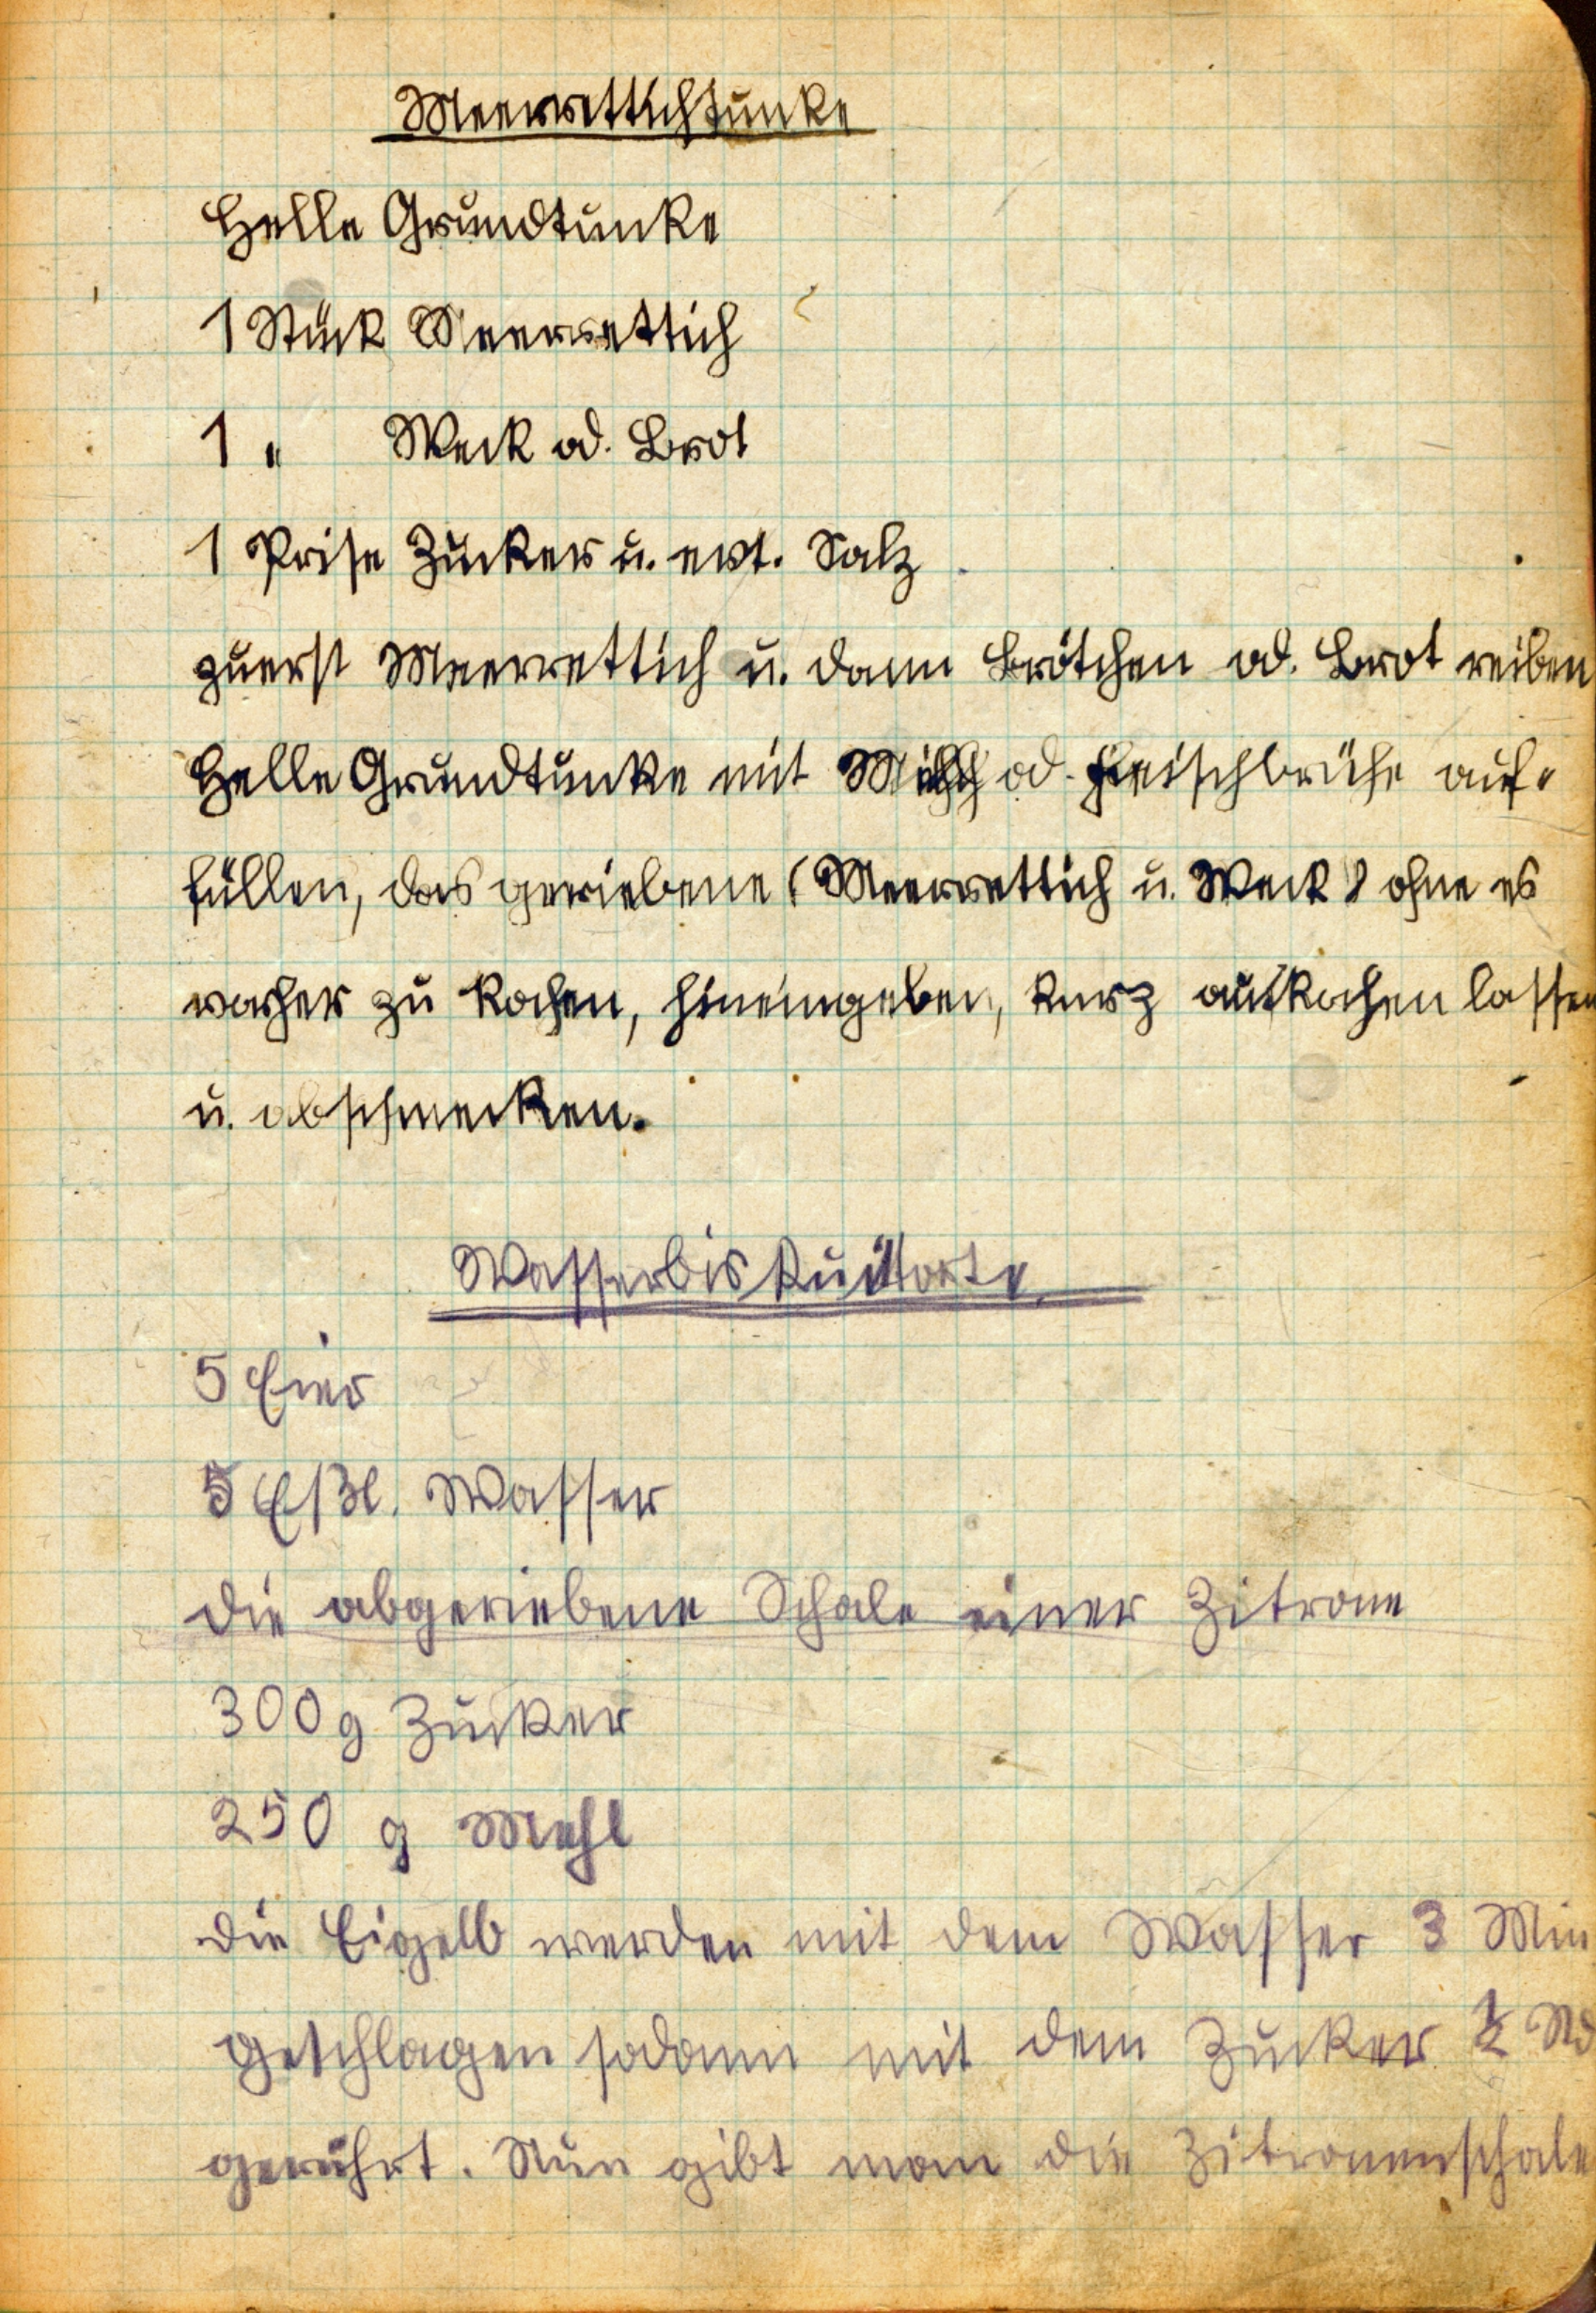 Meerrettichtunke
Helle Grundtunke
1 Stück Meerrettich
1 " Weck od. Brot
1 Prise Zucker u. evt. Salz
zuerst Meerrettich u. dann Brötchen od. Brot reiben
Helle Grundtunke mit Milch od. Fleischbrühe auf-
füllen, das geriebene (Meerrettich u. Weck) ohne es
vorher zu kochen, hineingeben, kurz aufkochen lassen
u. abschmecken.
Wasserbiskuittorte
5 Eier
5 Eßl. Wasser
die abgeriebene Schale einer Zitrone
300 g Zucker
250 g Mehl
die Eigelb werden mit dem Wasser 3 Min
geschlagen sodann mit dem Zucker ½ Std
gerührt. Nun gibt man die Zitronenschale